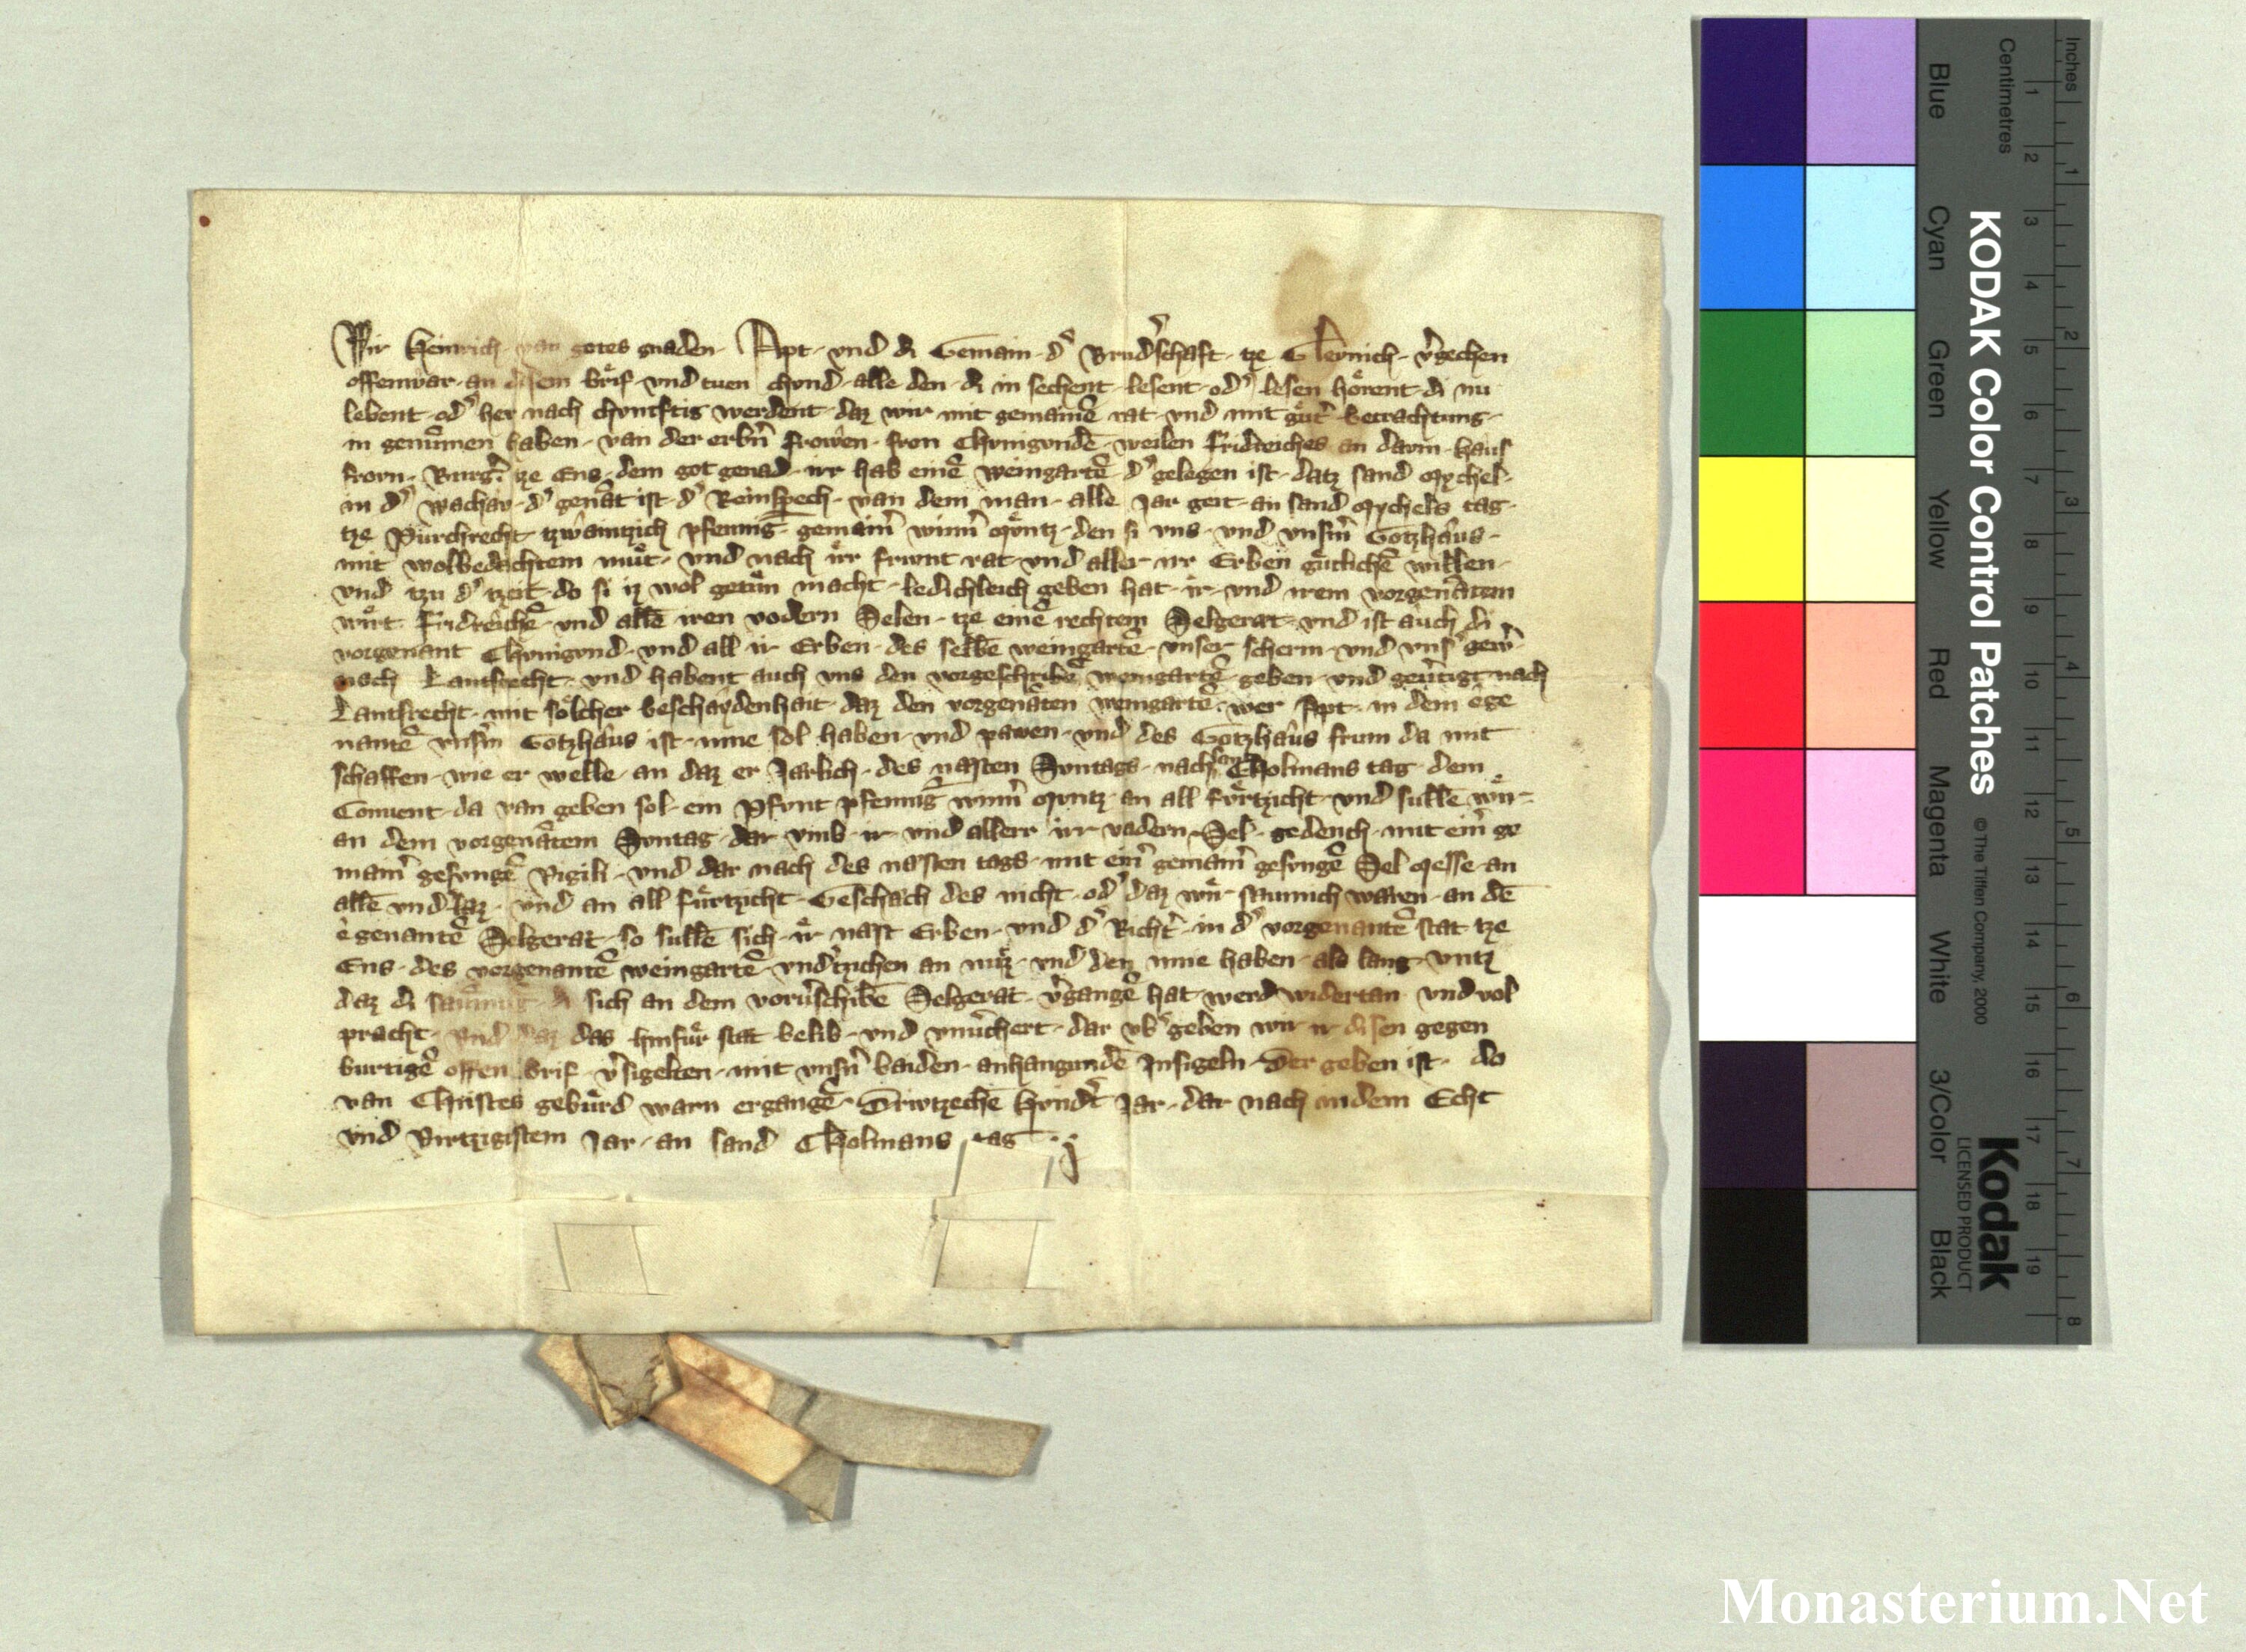 Wir Heinrich · van gotes gnaden · Apt · vnd di Gemain · d' Brud'schaft · tze Glevnich · v'gechen
offenwar · an disem brif · vnd tuen chvnd · alle den · di in sechent · lesent · od' lesen hörent · di nu
lebent · od' her nach chvnftig werdent · daz wir mit gemainē rat · vnd mit gůt' betrachtung ·
in genumen haben · van der erbn̄ frowen · fron Chvnigvndē · weilen Fridreiches an darm · haus
frown · Burg' tze Ens · dem got genad · irr hab einē weingartē d' gelegen ist · datz sand Mychel ·
in d' wachav · d' genāt ist · d' Reinspech · van dem man · alle Jar geit · an sand Mychels tag ·
tze Purchrecht · tzwaintzich pfennīg gemain' winn' Mvntz · den si vns · vnd vnserm Gotzhaus ·
mit wolbedachtem mut · vnd nach irr frivnt rat · vnd aller irr Erben gutlichē willen ·
vnd tzu d' tzeit · do si iz wol getun macht · ledichleich geben hat · ir · vnd irem vorgenātem
wirt Fridreichē · vnd allē iren vodern Selen · tze einē rechtem Selgerat · vnd ist auch di
vorgenant Chvnigvnd · vnd all ir Erben · des selbē weingartē · vnser scherm · vnd vns' gew'
nach Lantsrecht · vnd habent auch vns den vorgeschribē weingartē · geben · vnd gev'tigt nach
Lantsrecht · mit sölcher beschaydenhait · daz den vorgenāten weingartē · wer Apt · in dem ege
nantē vnserm Gotzhaus ist · inne sol haben · vnd pawen · vnd des Gotzhaus frum da mit
schaffen · wie er welle · an daz er Jarlich · des nasten Svntags · nach sand Cholmans tag · dem
Conuent · da van geben sol · ein Pfvnt pfennīg winn' Mvntz · an all fürtzicht · vnd sullē wir ·
an dem vorgenātem Svntag · dar vmb · ir · vnd allerr irr vadern · Sel · gedench · mit eim ge
main' gesvngē Vigili · vnd dar nach des nasten tags · mit eim gemaim gesvngē Sel Messe · an
allē vnd'laz · vnd an all fürtzicht · Geschach des nicht · od' daz wir saumich waren · an dē
egenantē Selgerat · so sullē sich · ir nast Erben · vnd d' Richt' · in d' vorgenantē stat tze
Ens · des vorgenantē weingartē · vnd'tzichen an nutz · vnd den inne haben · als lang · vntz
daz di saumnug · di sich an dem vorv'schribē Selgerat · v'gangē hat · werd widertan · vnd vol
pracht · vnd daz das hinfür stat belib · vnd vnv'chert · dar vb' geben wir ir disen gegen
burtigē offen brif · v'sigelten · mit vnsn̄ baiden · anhangundē Insigeln · Der geben ist · do
van Christes geburd warn ergangē · Driwtzechē hvnd't Jar · dar nach in dem Echt
vnd Virtzigistem Jar · an sand Cholmans tag ·
KODAK Color Control Patches
© The Tiffen Company, 2000
Kodak
LICENSED PRODUCT
Blue Cyan Green Yellow Red Magenta White 3/Color Black
Centimetres
1 2 3 4 5 6 7 8 9 10 11 12 13 14 15 16 17 18 19
Inches
1 2 3 4 5 6 7 8
Monasterium.Net